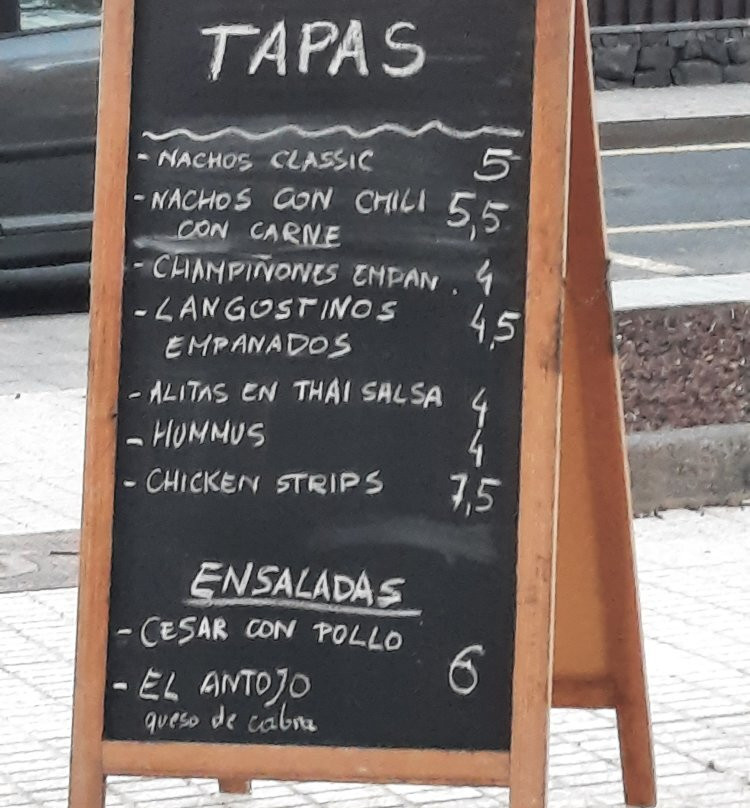 TAPAS
- NACHOS CLASSIC 5
- NACHOS CON CHILI 5,5
CON CARNE
- CHAMPIÑONES EMPAN. 4
- LANGOSTINOS 4,5
EMPANADOS
- ALITAS EN THAI SALSA 4
- HUMMUS 4
- CHICKEN STRIPS 7,5
ENSALADAS
- CESAR CON POLLO
- EL ANTOJO 6
queso de cabra